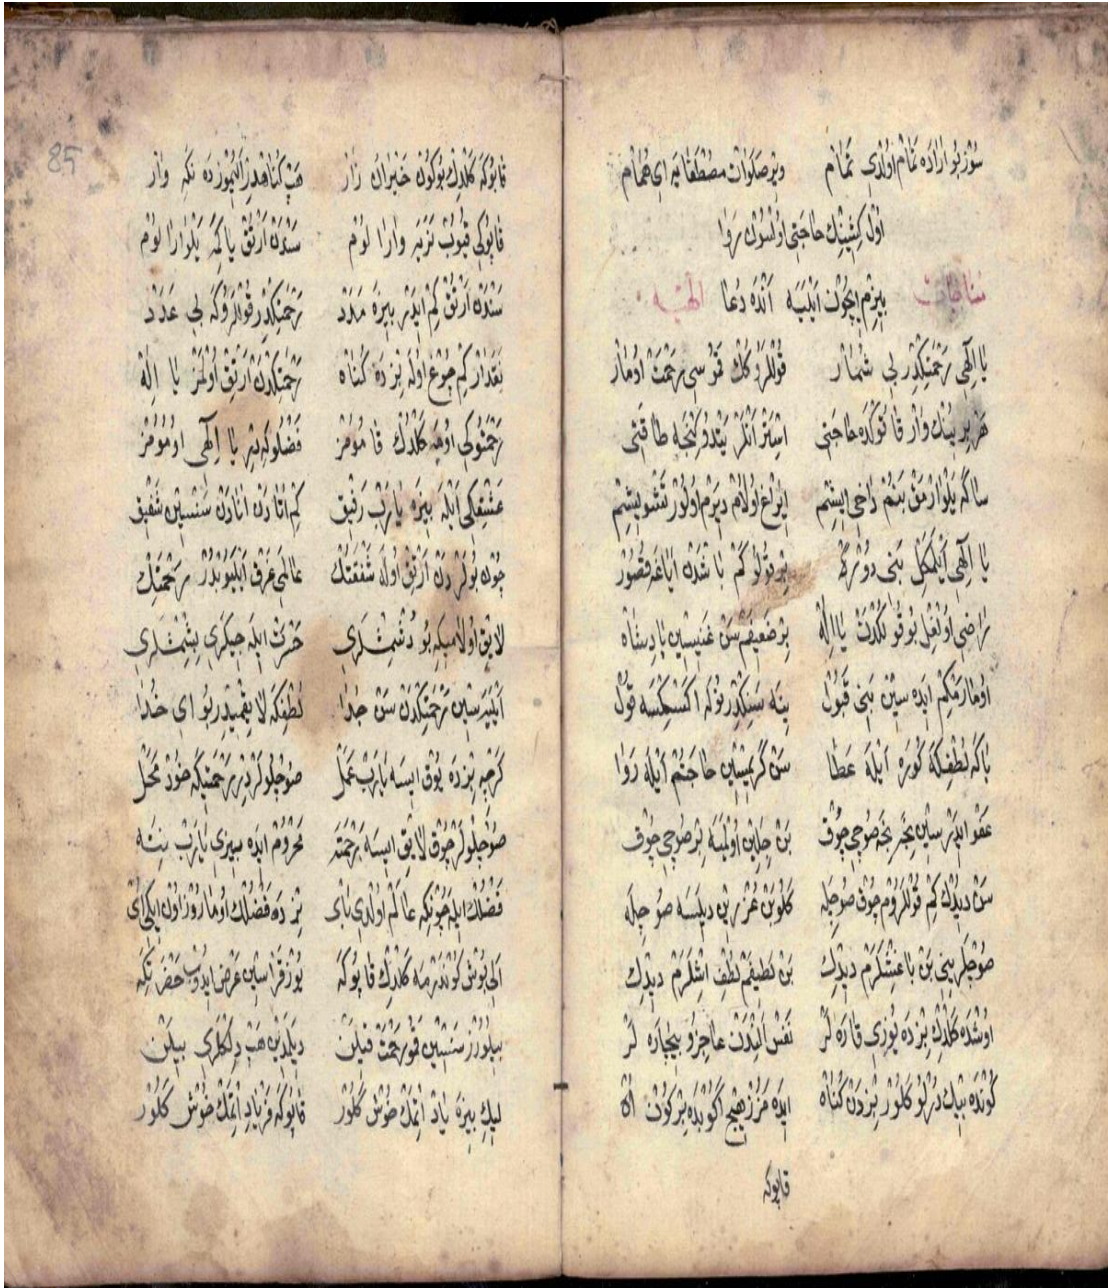 سوز بو اراده تمام اولدی تمام ویر صلوات مصطفایه ای همام
اول کشینك حاجتی اولسون روا
مناجات بیزم ایچون ایلیه انده دعا الهیه
یا الهی رحمتكدر بی شمار قوللروكك قموسی رحمت اومار
هر برینك وار قاپوكده حاجتی استر انلر یتدوكنجه طاقتی
ساكه یلوارمق بنم داخی ایشم ایراغ اولام دیرم اولور تشویشم
یا الهی ایلمكل بنی دور بر قولوكم باشدن ایاغه قصور
راضی اولغل بو قولكدن یا اله بر ضعیفم سن غنیسین پادشاه
اومارمكم ایده سین بنی قبول ینه سنكدر نوله اكسكسه قول
باكه لطفكه كوره ایله عطا سن كریمسین حاجتم ایله روا
عفو ایدرسین نجه نجه صوچی چوق بن جلاین اولمیه بر صوچی چوق
سن دیدك كم قوللروم چوق صوچله كلو بن عذرین دیلسه صوچیله
صوچلرینی بن باغشلرم دیدك بن لطیفم لطف اشلرم دیدك
اوشده كلدك بزده یوزی قاره لر نفس الندن عاجز و بیچاره لر
كونده بیك درلو كلور بزدن كناه ایده مزز هیچ اكوبده بر كون اه
قاپوكه
85
قاپوكه كلدك بوكون حیران زار هپ كناهدر الیموزده نكه وار
قاپوكی قیوب نریه وارالوم سندن ارتق یا كمه یلوارالوم
سندن ارتق كم ایدر بیزه مدد رحمتكدر قوللروكه بی عدد
نقدار كم چوغ اوله بزده كناه رحمتكدن ارتق اولمز یا اله
رحمتوكی اومه كلدك قامومز فضلوكه در یا الهی اومومز
عشقكی ایله بیزه یارب رفیق كم اتادن انادن سنسین شفیق
چون بولردن ارتق اوله شفقتك عالمی غرق ایلیوبدر رحمتك
لایق اولامیكه بو دشمشلری حسرت ایله جیكری بیشمشلری
ایلیه سین رحمتكدن سن جدا لطفكه لایقمیدر بو ای خدا
كرچه بزده یوق ایسه یارب عمل صوچلولردر رحمتیكه خود محل
صوچلولر چوق لایق ایسه رحمته محروم ایده بیزی یارب نیته
فضلك ایله چونكه عالم اولدی بای بزده فضلك اوماروز اول ایكی ای
الی بوش كوندرمه كلدك قاپوكه یوز قراسین عرض ایدوب حضرتكه
بیلورز سنسین قمو رحمت قیلن دیلدین هپ دلكلری بیلن
لیك بیزه یاد اتمك خوش كلور قاپوكه فریاد اتمك خوش كلور